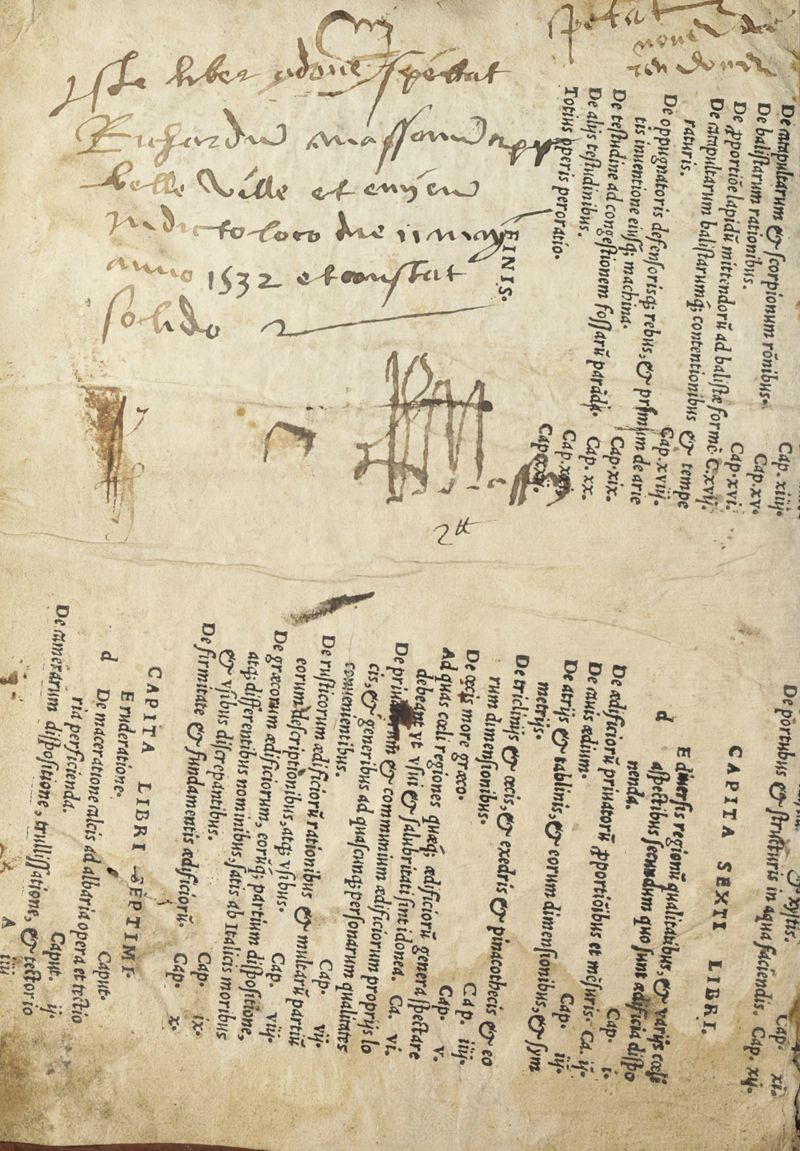 Iste liber ydone spectat
Richardum massom
belle ville et
In dicto loco die 11 may
anno 1532 et constat
solido 2
2 tt
De catapultarum & scorpionum rōnibus. Cap. xiiij.
De balistarum rationibus. Cap. xv.
De ꝓportiōe lapidū mittendorū ad balistæ formē Cap. xvi.
De catapultarum balistarumq; contentionibus & tempe C. xvij.
raturis. Cap. xviij.
De oppugnatorijs defensorisq; rebus, & primum de arie
tis inuentione eiusq; machina. Cap. xix.
De testudine ad congestionem fossarū parāda. Cap. xx.
De alijs testudinibus.
Totius operis peroratio.
FINIS.
De portubus & structuris in aqua faciendis. Cap. xij.
CAPITA SEXTI LIBRI.
d E diuersis regionū qualitatibus, & varijs cœli
aspectibus secundum quo sunt ædificia dispo
nenda. Cap. i.
De ædificiorū priuatorū ꝓportiōibus et mēsuris. Ca. ij.
De cauis ædium. Cap. iij.
De atrijs & tablinis, & eorum dimensionibus, & sym
metrijs.
De triclinijs & œcis, & exedris & pinacothecis & eo
rum dimensionibus. Cap. iiij.
De œcis more græco. Cap. v.
Ad quas cœli regiones quæq; ædificiorū genera spectare
debeant, vt vsui & salubritati sint idonea. Ca. vi.
De priuatorum & communium ædificiorum proprijs lo
cis, & generibus ad quascunq; personarum qualitates
conuenientibus. Cap. vij.
De rusticorum ædificiorū rationibus & multarū partiū
eorum descriptionibus, atq; vsibus. Cap. viij.
De græcorum ædificiorum, eorūq; partium dispositione,
atq; differentibus nominibus, satis ab Italicis moribus
& vsibus discrepantibus. Cap. ix.
De firmitate & fundamentis ædificiorū. Cap. x.
CAPITA LIBRI SEPTIMI.
d E ruderatione. Caput.
De maceratione calcis ad albaria opera et tectio
ria perficienda. Caput. ij.
De camerarum dispositione, trullissatione, & tectorio
A iiij